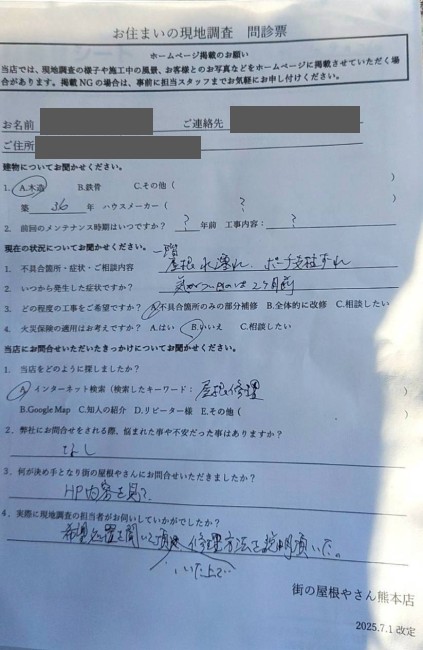 お住まいの現地調査　問診票
ホームページ掲載のお願い
当店では、現地調査の様子や施工中の風景、お客様とのお写真などをホームページに掲載させていただく場
合があります。掲載NGの場合は、事前に担当スタッフまでお気軽にお申し付けください。
お名前　ご連絡先
ご住所
建物についてお聞かせください。
1. A.木造　B.鉄骨　C.その他（　）
築 36 年　ハウスメーカー（ ? ）
2. 前回のメンテナンス時期はいつですか？ ? 年前　工事内容： ?
現在の状況についてお聞かせください。
一階
1. 不具合箇所・症状・ご相談内容　屋根水漏れ、ポーチ支柱ずれ
2. いつから発生した症状ですか？　気がついたのは2ヶ月前
3. どの程度の工事をご希望ですか？ A.不具合箇所のみの部分補修　B.全体的に改修　C.相談したい
4. 火災保険の適用はお考えですか？ A.はい　B.いいえ　C.相談したい
当店にお問合せいただいたきっかけについてお聞かせください。
1. 当店をどのように探しましたか？
A.インターネット検索（検索したキーワード： 屋根修理 ）
B.Google Map　C.知人の紹介　D.リピーター様　E.その他（　）
2. 弊社にお問合せをされる際、悩まれた事や不安だった事はありますか？
なし
3. 何が決め手となり街の屋根やさんにお問合せいただきましたか？
HP内容を見て、
4. 実際に現地調査の担当者がお伺いしていかがでしたか？
希望処置を聞いて頂い、修理方法を説明頂いた。
いた上で
街の屋根やさん熊本店
2025.7.1 改定